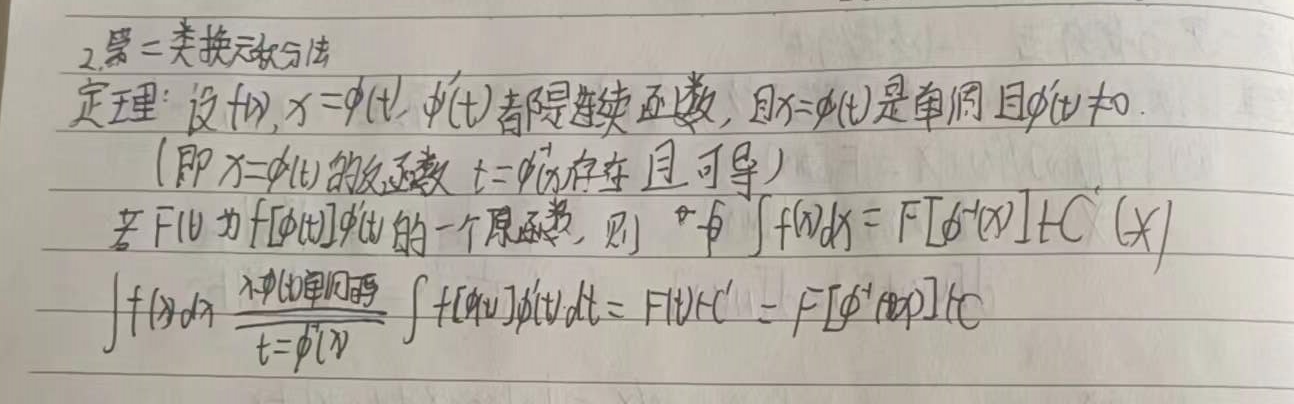 2.第二类换元积分法
定理: 设f(x), x=φ(t), φ'(t)都是连续函数, 且x=φ(t)是单调且φ'(t)≠0.
(即x=φ(t)的反函数 t=φ⁻¹(x)存在且可导)
若F(t)为f[φ(t)]φ'(t)的一个原函数, 则 ∫f(x)dx=F[φ⁻¹(x)]+C (x)
∫f(x)dx x=φ(t)单调 t=φ⁻¹(x) ∫f[φ(t)]φ'(t)dt=F(t)+C=F[φ⁻¹(x)]+C